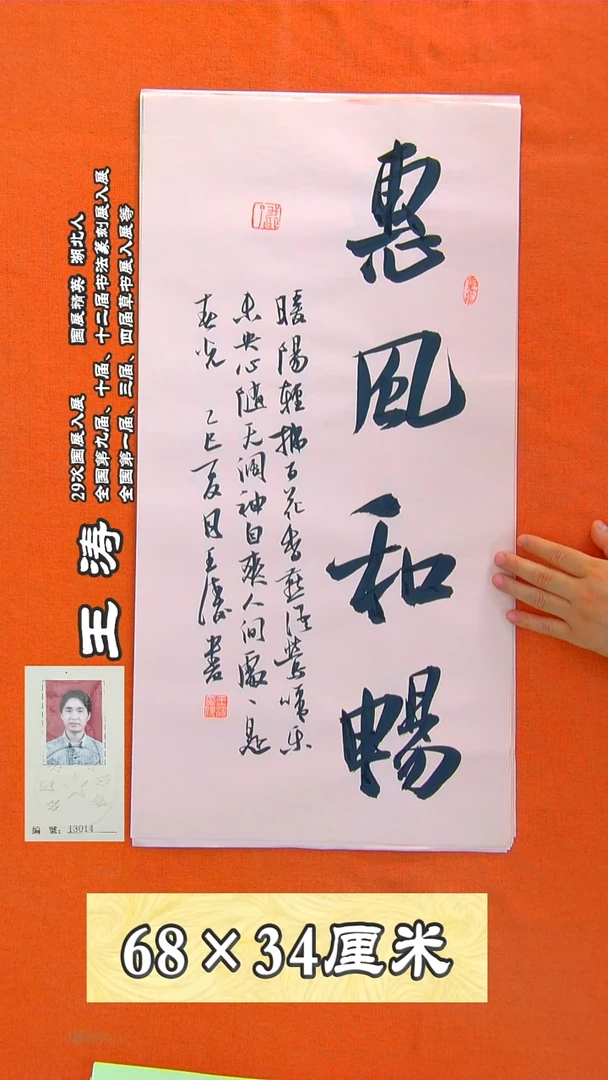 惠風和暢
暖陽輕拂百花香燕語鶯啼乐
未央心隨天阔神自爽人间處、是
春光 乙巳夏月王濤書
王涛
29次国展入展 国展精英 湖北人
全国第九届、十届、十二届书法篆刻展入展
全国第一届、三届、四届草书展入展等
编號：13014
68×34厘米